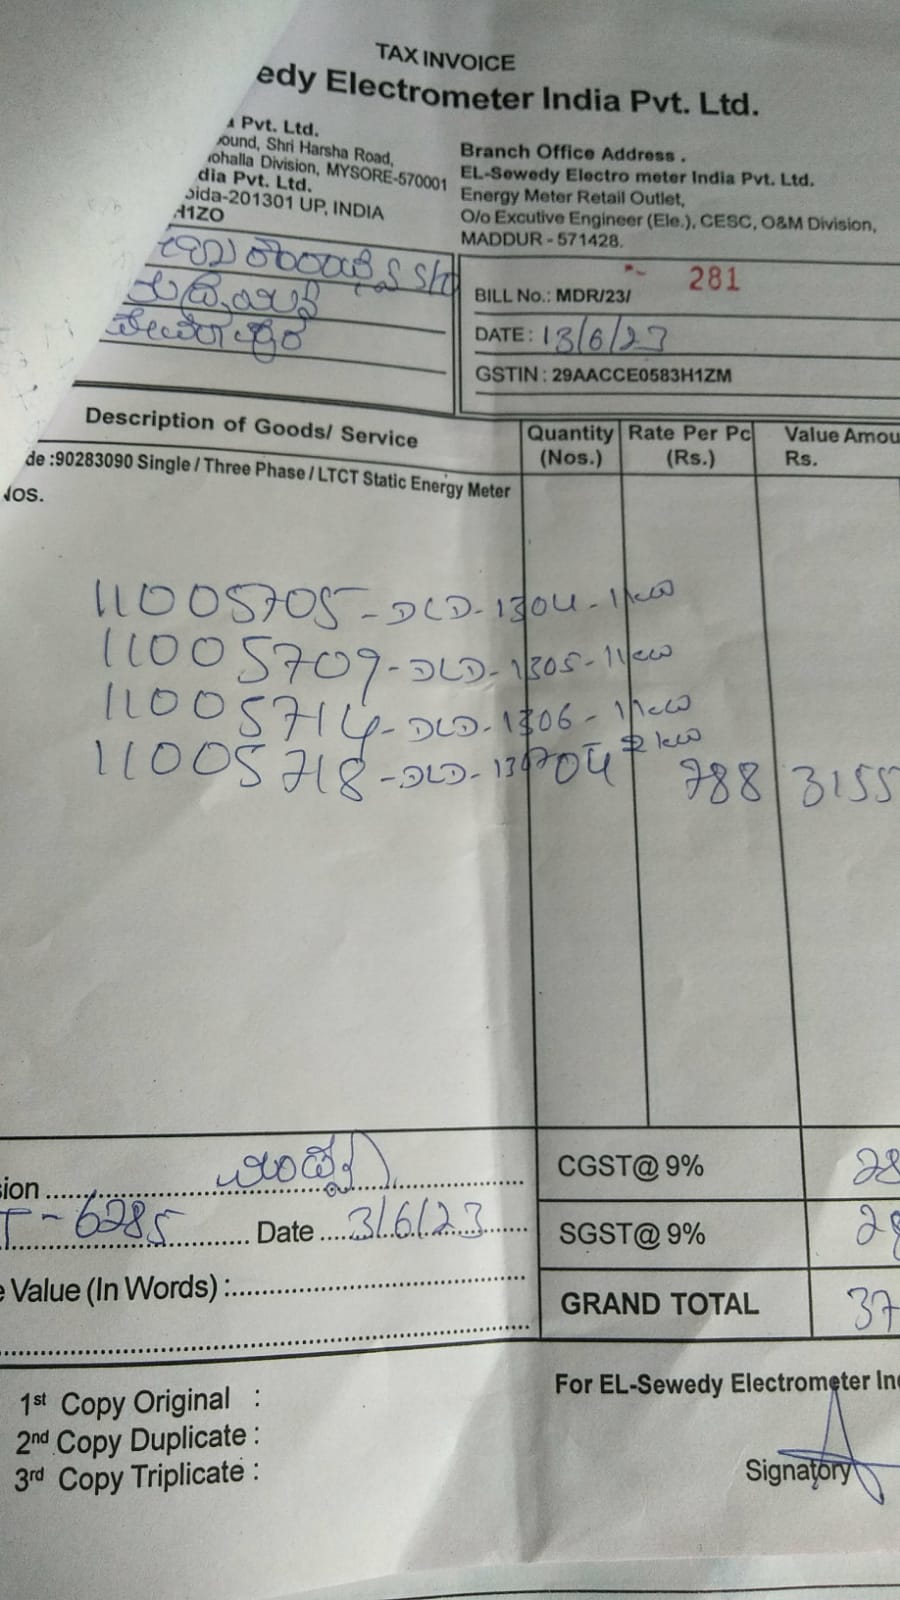 TAX INVOICE
edy Electrometer India Pvt. Ltd.
a Pvt. Ltd.
ound, Shri Harsha Road,
ohalla Division, MYSORE-570001
dia Pvt. Ltd.
oida-201301 UP, INDIA
H1ZO
Branch Office Address .
EL-Sewedy Electro meter India Pvt. Ltd.
Energy Meter Retail Outlet,
O/o Excutive Engineer (Ele.), CESC, O&M Division,
MADDUR - 571428.
S/o
BILL No.: MDR/23/ 281
DATE : 13/6/23
GSTIN : 29AACCE0583H1ZM
Description of Goods/ Service
Quantity (Nos.)
Rate Per Pc (Rs.)
Value Amou
Rs.
de :90283090 Single / Three Phase / LTCT Static Energy Meter
Nos.
11005705-DLD-1304-1kw
11005709-DLD-1305-1kw
11005714-DLD-1306-1kw
11005718-DLD-1307-2kw
04 788 3155
sion ಮಂಡ್ಯ
T-6285 Date 3/6/23
e Value (In Words) :
CGST@ 9% 28
SGST@ 9% 28
GRAND TOTAL 37
1st Copy Original :
2nd Copy Duplicate :
3rd Copy Triplicate :
For EL-Sewedy Electrometer Ind
Signatory